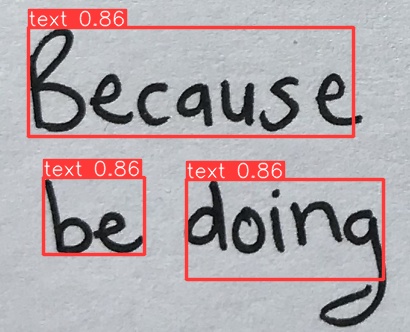 text 0.86
Because
text 0.86 text 0.86
be doing